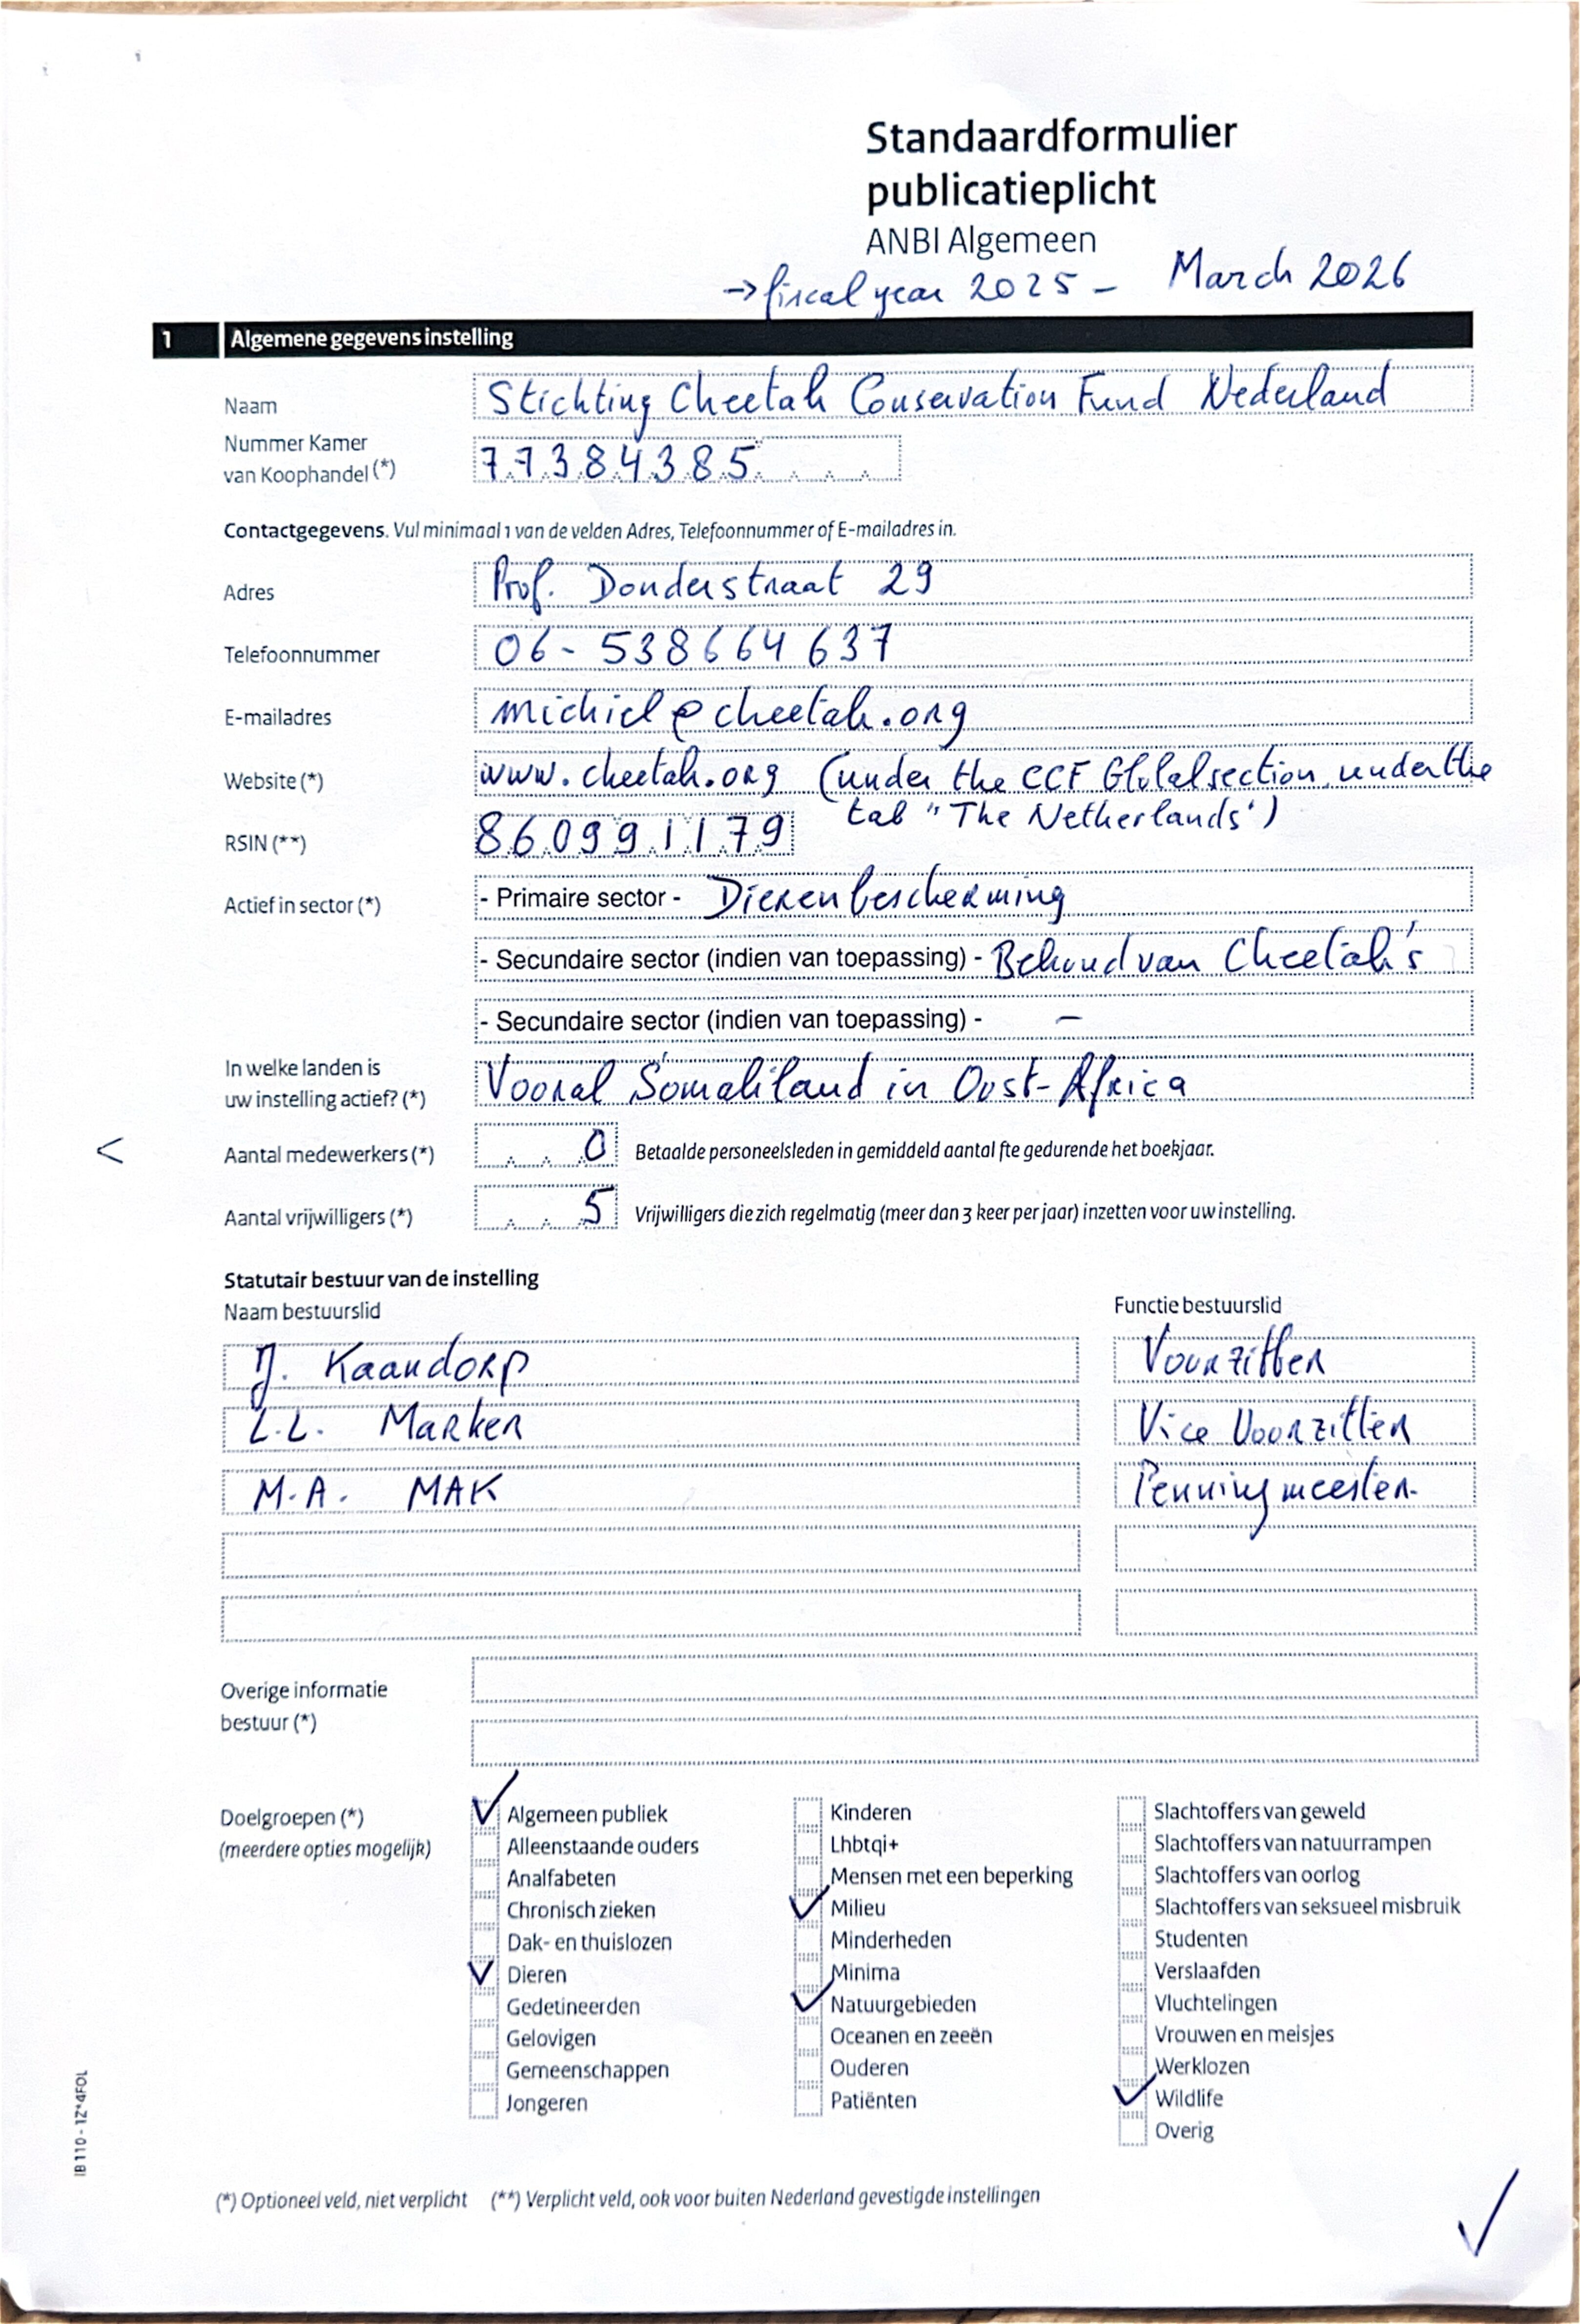 Standaardformulier
publicatieplicht
ANBI Algemeen
→ fiscal year 2025 – March 2026
1 Algemene gegevens instelling
Naam Stichting Cheetah Conservation Fund Nederland
Nummer Kamer
van Koophandel (*) 77384385
Contactgegevens. Vul minimaal 1 van de velden Adres, Telefoonnummer of E-mailadres in.
Adres Prof. Donderstraat 29
Telefoonnummer 06-538664637
E-mailadres michiel@cheetah.org
Website (*) www.cheetah.org (under the CCF Global section, under the
tab "The Netherlands')
RSIN (**) 860991179
Actief in sector (*) - Primaire sector - Dierenbescherming
- Secundaire sector (indien van toepassing) - Behoud van Cheetah's
- Secundaire sector (indien van toepassing) - –
In welke landen is
uw instelling actief? (*) Vooral Somaliland in Oost-Africa
< Aantal medewerkers (*) 0 Betaalde personeelsleden in gemiddeld aantal fte gedurende het boekjaar.
Aantal vrijwilligers (*) 5 Vrijwilligers die zich regelmatig (meer dan 3 keer per jaar) inzetten voor uw instelling.
Statutair bestuur van de instelling
Naam bestuurslid Functie bestuurslid
J. Kaandorp Voorzitter
L.L. Marker Vice Voorzitter
M.A. MAK Penningmeester
Overige informatie
bestuur (*)
Doelgroepen (*)
(meerdere opties mogelijk)
✓ Algemeen publiek
Alleenstaande ouders
Analfabeten
Chronisch zieken
Dak- en thuislozen
✓ Dieren
Gedetineerden
Gelovigen
Gemeenschappen
Jongeren
Kinderen
Lhbtqi+
Mensen met een beperking
✓ Milieu
Minderheden
Minima
✓ Natuurgebieden
Oceanen en zeeën
Ouderen
Patiënten
Slachtoffers van geweld
Slachtoffers van natuurrampen
Slachtoffers van oorlog
Slachtoffers van seksueel misbruik
Studenten
Verslaafden
Vluchtelingen
Vrouwen en meisjes
Werklozen
✓ Wildlife
Overig
IB 110 - 1Z*4FOL
(*) Optioneel veld, niet verplicht (**) Verplicht veld, ook voor buiten Nederland gevestigde instellingen
✓